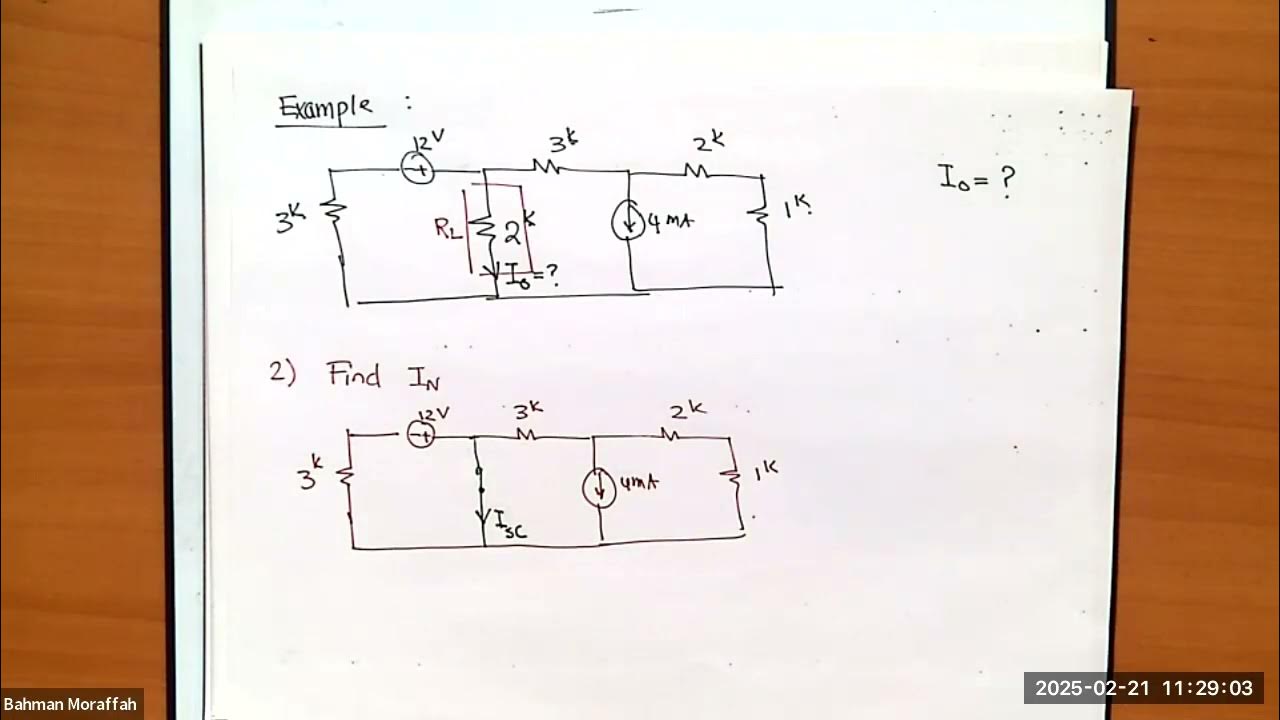 Example :
12V
3k
2k
I₀ = ?
3k
RL
2k
4mA
1k
I₀=?
2) Find IN
12V
3k
2k
3k
4mA
1k
ISC
Bahman Moraffah
2025-02-21 11:29:03